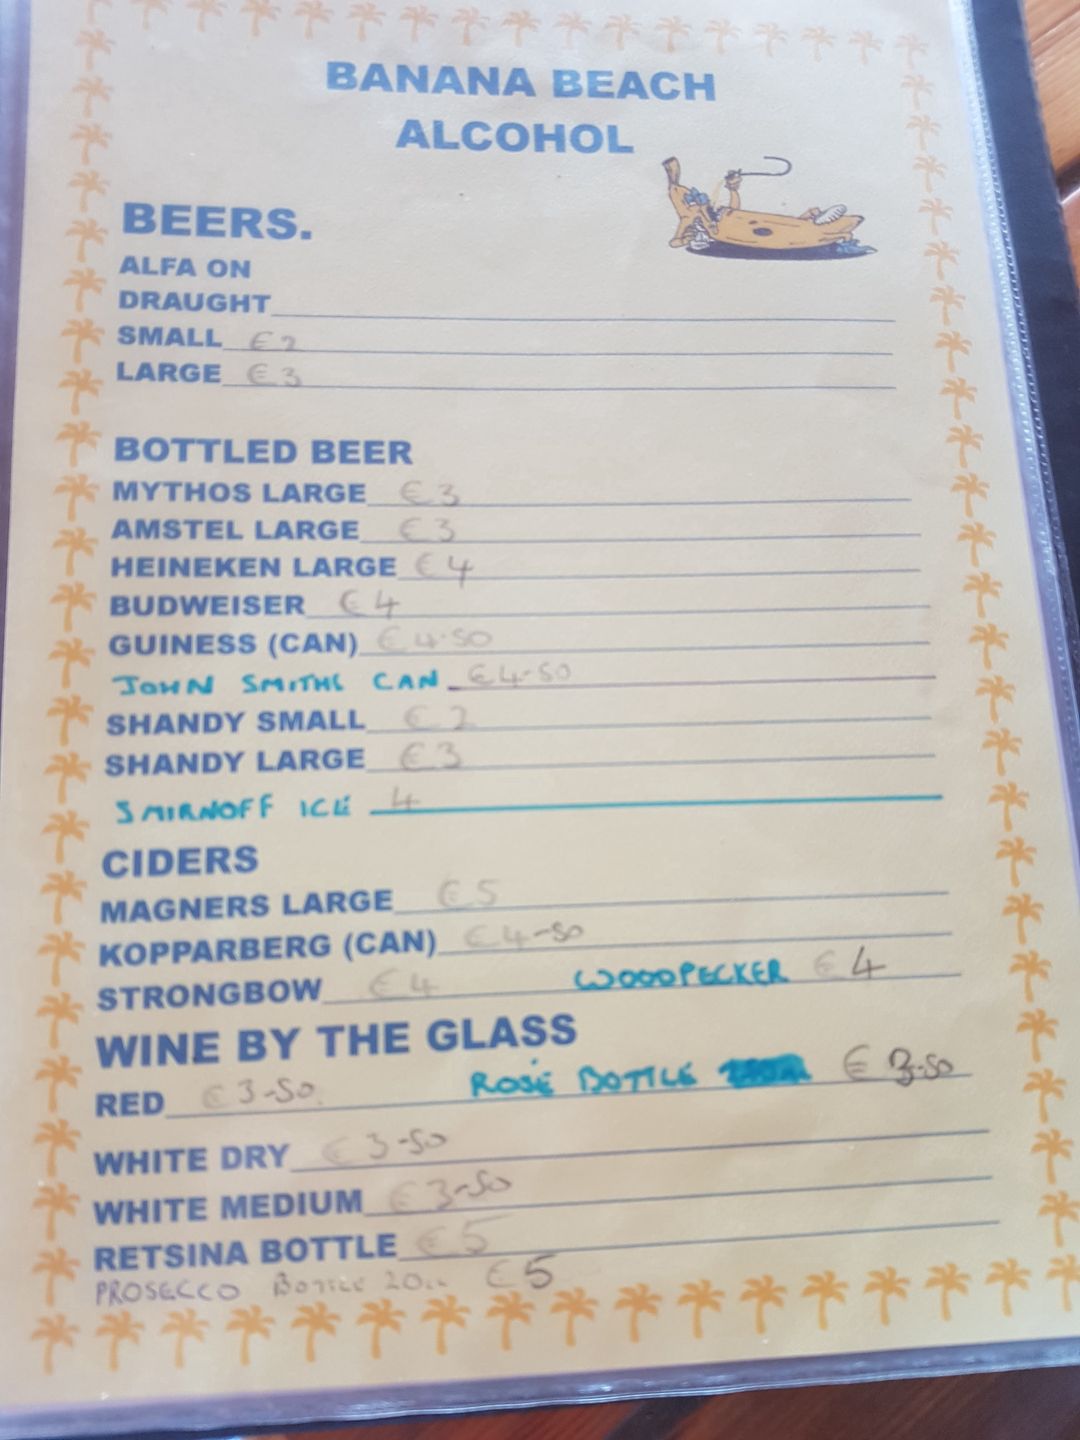 BANANA BEACH
ALCOHOL
BEERS.
ALFA ON
DRAUGHT
SMALL €2
LARGE €3
BOTTLED BEER
MYTHOS LARGE €3
AMSTEL LARGE €3
HEINEKEN LARGE €4
BUDWEISER €4
GUINESS (CAN) €4.50
JOHN SMITHS CAN €4-50
SHANDY SMALL €2
SHANDY LARGE €3
SMIRNOFF ICE 4
CIDERS
MAGNERS LARGE €5
KOPPARBERG (CAN) €4-50
STRONGBOW €4 WOODPECKER €4
WINE BY THE GLASS
RED €3-50. ROSÉ BOTTLE € 3-50
WHITE DRY €3-50
WHITE MEDIUM €3-50
RETSINA BOTTLE €5
PROSECCO BOTTLE €5